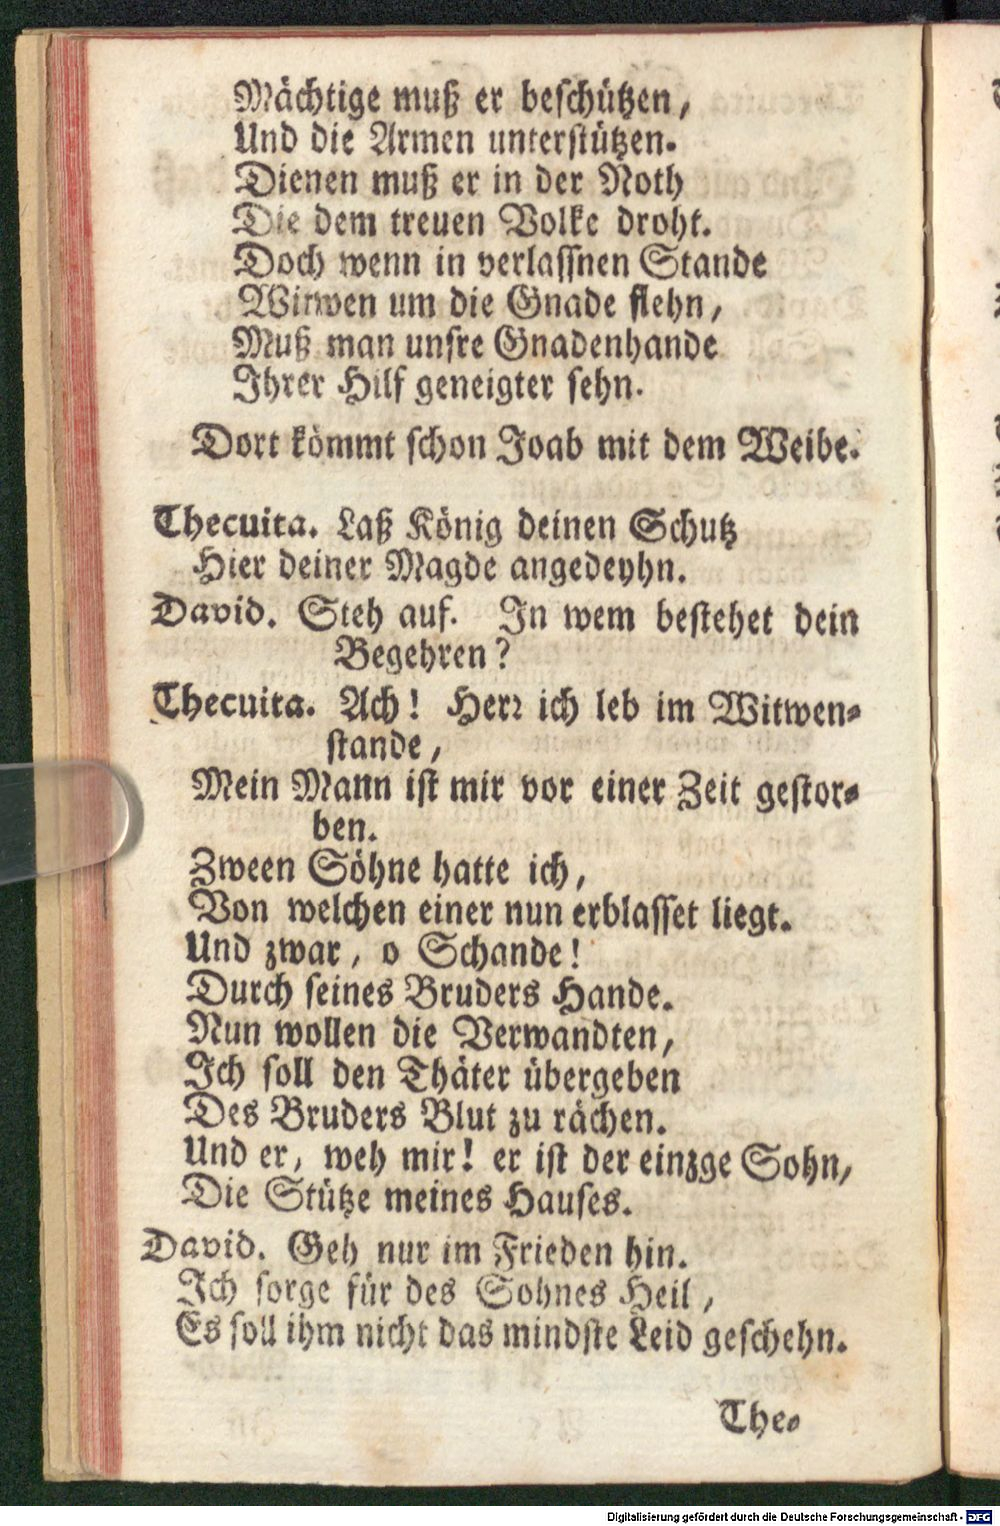 Mächtige muß er beschützen,
Und die Armen unterstützen.
Dienen muß er in der Noth
Die dem treuen Volke droht.
Doch wenn in verlassnen Stande
Witwen um die Gnade flehn,
Muß man unsre Gnadenhande
Ihrer Hilf geneigter sehn.
Dort kömmt schon Joab mit dem Weibe.
Thecuita. Laß König deinen Schutz
Hier deiner Magde angedeyhn.
David. Steh auf. In wem bestehet dein
Begehren?
Thecuita. Ach! Herr ich leb im Witwen-
stande,
Mein Mann ist mir vor einer Zeit gestor-
ben.
Zween Söhne hatte ich,
Von welchen einer nun erblasset liegt.
Und zwar, o Schande!
Durch seines Bruders Hande.
Nun wollen die Verwandten,
Ich soll den Thäter übergeben
Des Bruders Blut zu rächen.
Und er, weh mir! er ist der einzge Sohn,
Die Stütze meines Hauses.
David. Geh nur im Frieden hin.
Ich sorge für des Sohnes Heil,
Es soll ihm nicht das mindste Leid geschehn.
The-
Digitalisierung gefördert durch die Deutsche Forschungsgemeinschaft - DFG